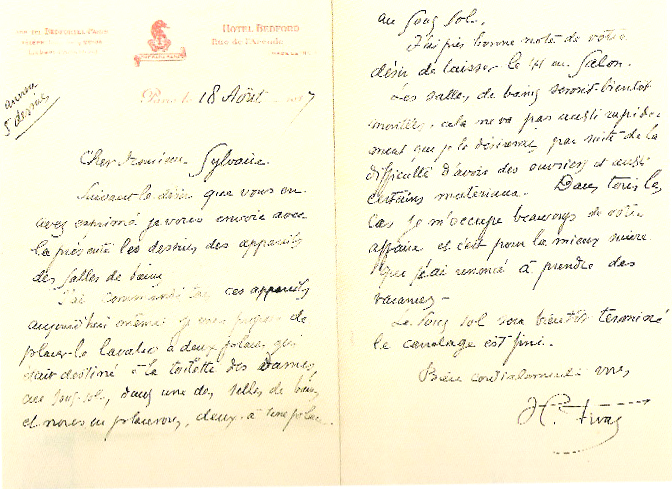 HOTEL BEDFORD
Rue de l'Arcade
Paris, le 18 Août 7
annexe
5 dessins
Cher Monsieur Sylvain.
Suivant le désir que vous en
avez exprimé je vous envoie avec
la présente les dessins des appareils
des salles de bains
J'ai commandé ces appareils
aujourd'hui même de
placer le lavabo à deux places qui
était destiné à la toilette des Dames,
au sous-sol, dans une des salles de bains
et nous en placerons, deux à une place
au sous sol.
J'ai pris bonne note de votre
désir de laisser le au Salon.
Les salles, de bains seront bientôt
cela ne va pas aussi rapide-
ment que je le désirerais par suite de la
difficulté d'avoir des ouvriers et aussi
certains matériaux. Dans tous les
cas je m'occupe beaucoup de votre
affaire et c'est pour la mieux suivre
que j'ai renoncé à prendre des
vacances -
Le sous sol sera bientôt terminé
le carrelage est fini.
Bien cordialement